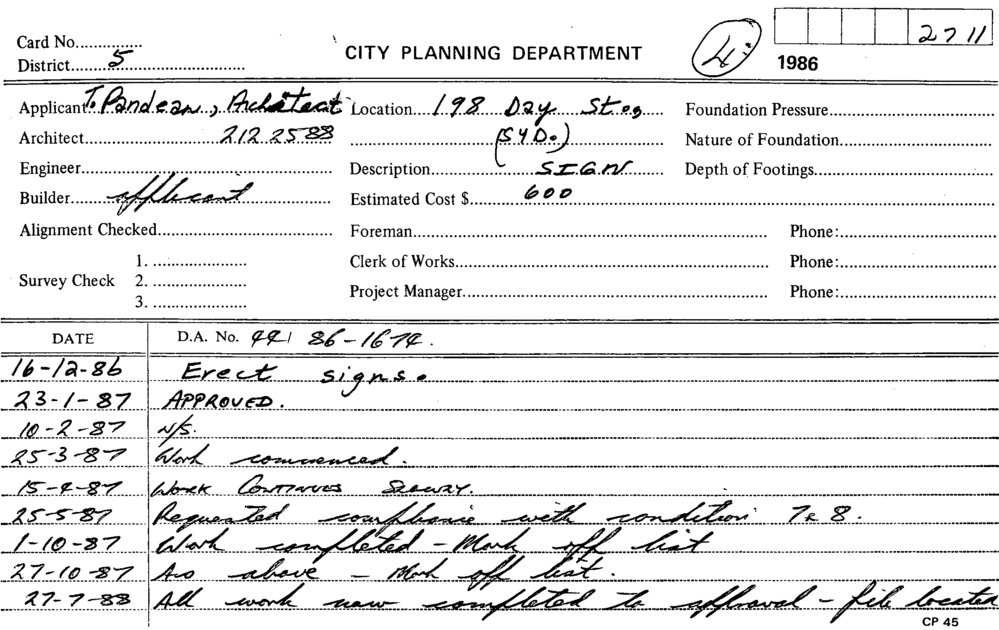 Card No...............
District.......5
CITY PLANNING DEPARTMENT
4
2711
1986
Applicant T. Pandean, Architect Location 198 Day St.,
Foundation Pressure
Architect 212 2588 (SYD.)
Nature of Foundation
Engineer
Description SIGN
Depth of Footings
Builder applicant
Estimated Cost $ 600
Alignment Checked
Foreman
Phone:
Survey Check
1.
2.
3.
Clerk of Works
Phone:
Project Manager
Phone:
DATE D.A. No. 44/ 86-1674.
16-12-86 Erect signs.
23-1-87 APPROVED.
10-2-87 N/S.
25-3-87 Work commenced.
15-4-87 WORK CONTINUES SLOWLY.
25-5-87 Requested compliance with condition 7 & 8.
1-10-87 Work completed - Mark off list
27-10-87 As above - Mark off list.
27-7-88 All work now completed to approval - file located
CP 45